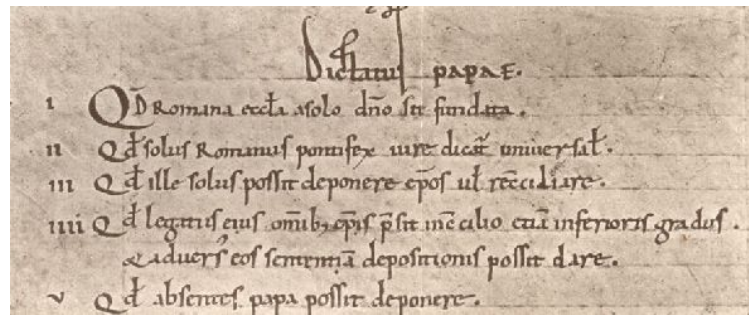 Dictatus papae.
i Qd Romana eccla a solo dno sit fundata.
ii Qd solus Romanus pontifex iure dicat universal.
iii Qd ille solus possit deponere epos vel reconciliare.
iiii Qd legatus eius omnib; epis psit in cilio etia inferioris gradus.
& advers eos sententia depositionis possit dare.
v Qd absentes papa possit deponere.